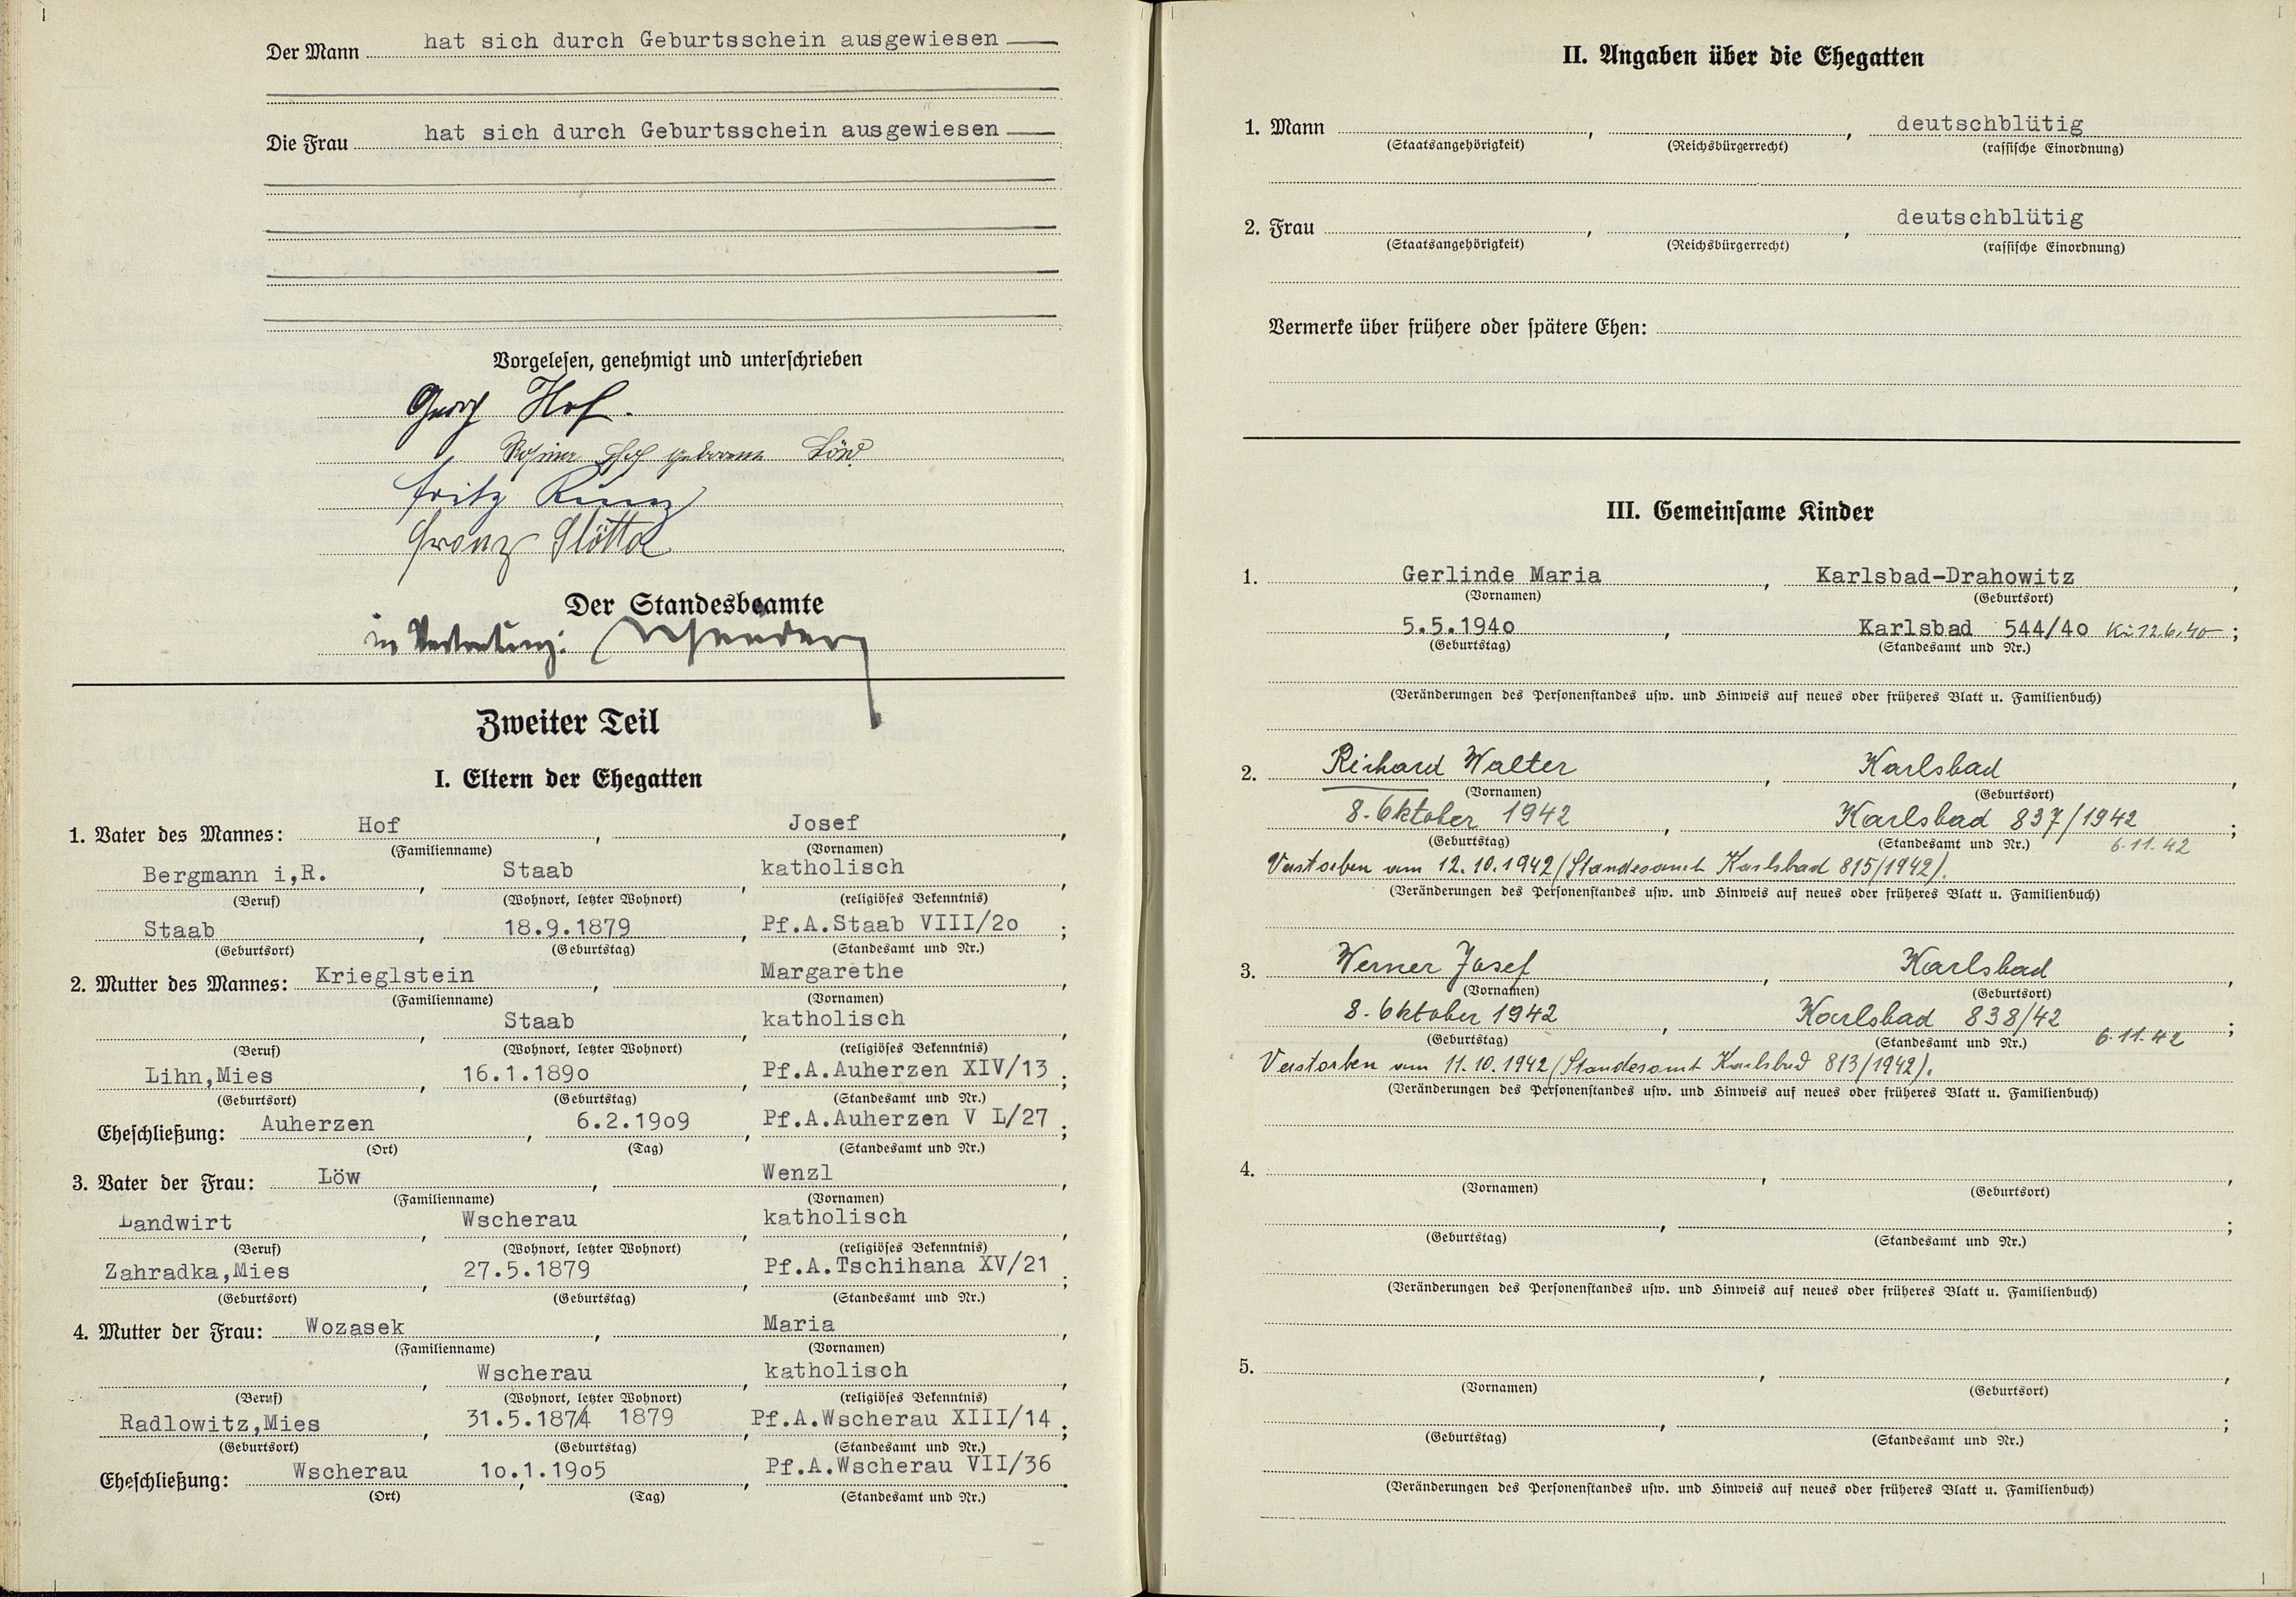 Der Mann hat sich durch Geburtsschein ausgewiesen
Die Frau hat sich durch Geburtsschein ausgewiesen
Vorgelesen, genehmigt und unterschrieben
Georg Hof.
Hof geborene Löw
Fritz Kunz
Franz Slotta
Der Standesbeamte
in Vertretung:
Zweiter Teil
I. Eltern der Ehegatten
1. Vater des Mannes: Hof, Josef,
(Familienname) (Vornamen)
Bergmann i,R., Staab, katholisch,
(Beruf) (Wohnort, letzter Wohnort) (religiöses Bekenntnis)
Staab, 18.9.1879, Pf.A.Staab VIII/2o;
(Geburtsort) (Geburtstag) (Standesamt und Nr.)
2. Mutter des Mannes: Krieglstein, Margarethe,
(Familienname) (Vornamen)
, Staab, katholisch,
(Beruf) (Wohnort, letzter Wohnort) (religiöses Bekenntnis)
Lihn,Mies, 16.1.189o, Pf.A.Auherzen XIV/13;
(Geburtsort) (Geburtstag) (Standesamt und Nr.)
Eheschließung: Auherzen, 6.2.19o9, Pf.A.Auherzen V L/27;
(Ort) (Tag) (Standesamt und Nr.)
3. Vater der Frau: Löw, Wenzl,
(Familienname) (Vornamen)
Landwirt, Wscherau, katholisch,
(Beruf) (Wohnort, letzter Wohnort) (religiöses Bekenntnis)
Zahradka,Mies, 27.5.1879, Pf.A.Tschihana XV/21;
(Geburtsort) (Geburtstag) (Standesamt und Nr.)
4. Mutter der Frau: Wozasek, Maria,
(Familienname) (Vornamen)
, Wscherau, katholisch,
(Beruf) (Wohnort, letzter Wohnort) (religiöses Bekenntnis)
Radlowitz,Mies, 31.5.1874 1879, Pf.A.Wscherau XIII/14;
(Geburtsort) (Geburtstag) (Standesamt und Nr.)
Eheschließung: Wscherau, 1o.1.19o5, Pf.A.Wscherau VII/36.
(Ort) (Tag) (Standesamt und Nr.)
II. Angaben über die Ehegatten
1. Mann , , deutschblütig
(Staatsangehörigkeit) (Reichsbürgerrecht) (rassische Einordnung)
2. Frau , , deutschblütig
(Staatsangehörigkeit) (Reichsbürgerrecht) (rassische Einordnung)
Vermerke über frühere oder spätere Ehen:
III. Gemeinsame Kinder
1. Gerlinde Maria, Karlsbad-Drahowitz,
(Vornamen) (Geburtsort)
5.5.194o, Karlsbad 544/4o Ki 12.6.40;
(Geburtstag) (Standesamt und Nr.)
(Veränderungen des Personenstandes usw. und Hinweis auf neues oder früheres Blatt u. Familienbuch)
2. Richard Walter, Karlsbad,
(Vornamen) (Geburtsort)
8. Oktober 1942, Karlsbad 837/1942;
(Geburtstag) (Standesamt und Nr.) 6.11.42
Verstorben am 12.10.1942 (Standesamt Karlsbad 815/1942).
(Veränderungen des Personenstandes usw. und Hinweis auf neues oder früheres Blatt u. Familienbuch)
3. Werner Josef, Karlsbad,
(Vornamen) (Geburtsort)
8. Oktober 1942, Karlsbad 838/42;
(Geburtstag) (Standesamt und Nr.) 6.11.42
Verstorben am 11.10.1942 (Standesamt Karlsbad 813/1942).
(Veränderungen des Personenstandes usw. und Hinweis auf neues oder früheres Blatt u. Familienbuch)
4. , ,
(Vornamen) (Geburtsort)
, ;
(Geburtstag) (Standesamt und Nr.)
(Veränderungen des Personenstandes usw. und Hinweis auf neues oder früheres Blatt u. Familienbuch)
5. , ,
(Vornamen) (Geburtsort)
, ;
(Geburtstag) (Standesamt und Nr.)
(Veränderungen des Personenstandes usw. und Hinweis auf neues oder früheres Blatt u. Familienbuch)